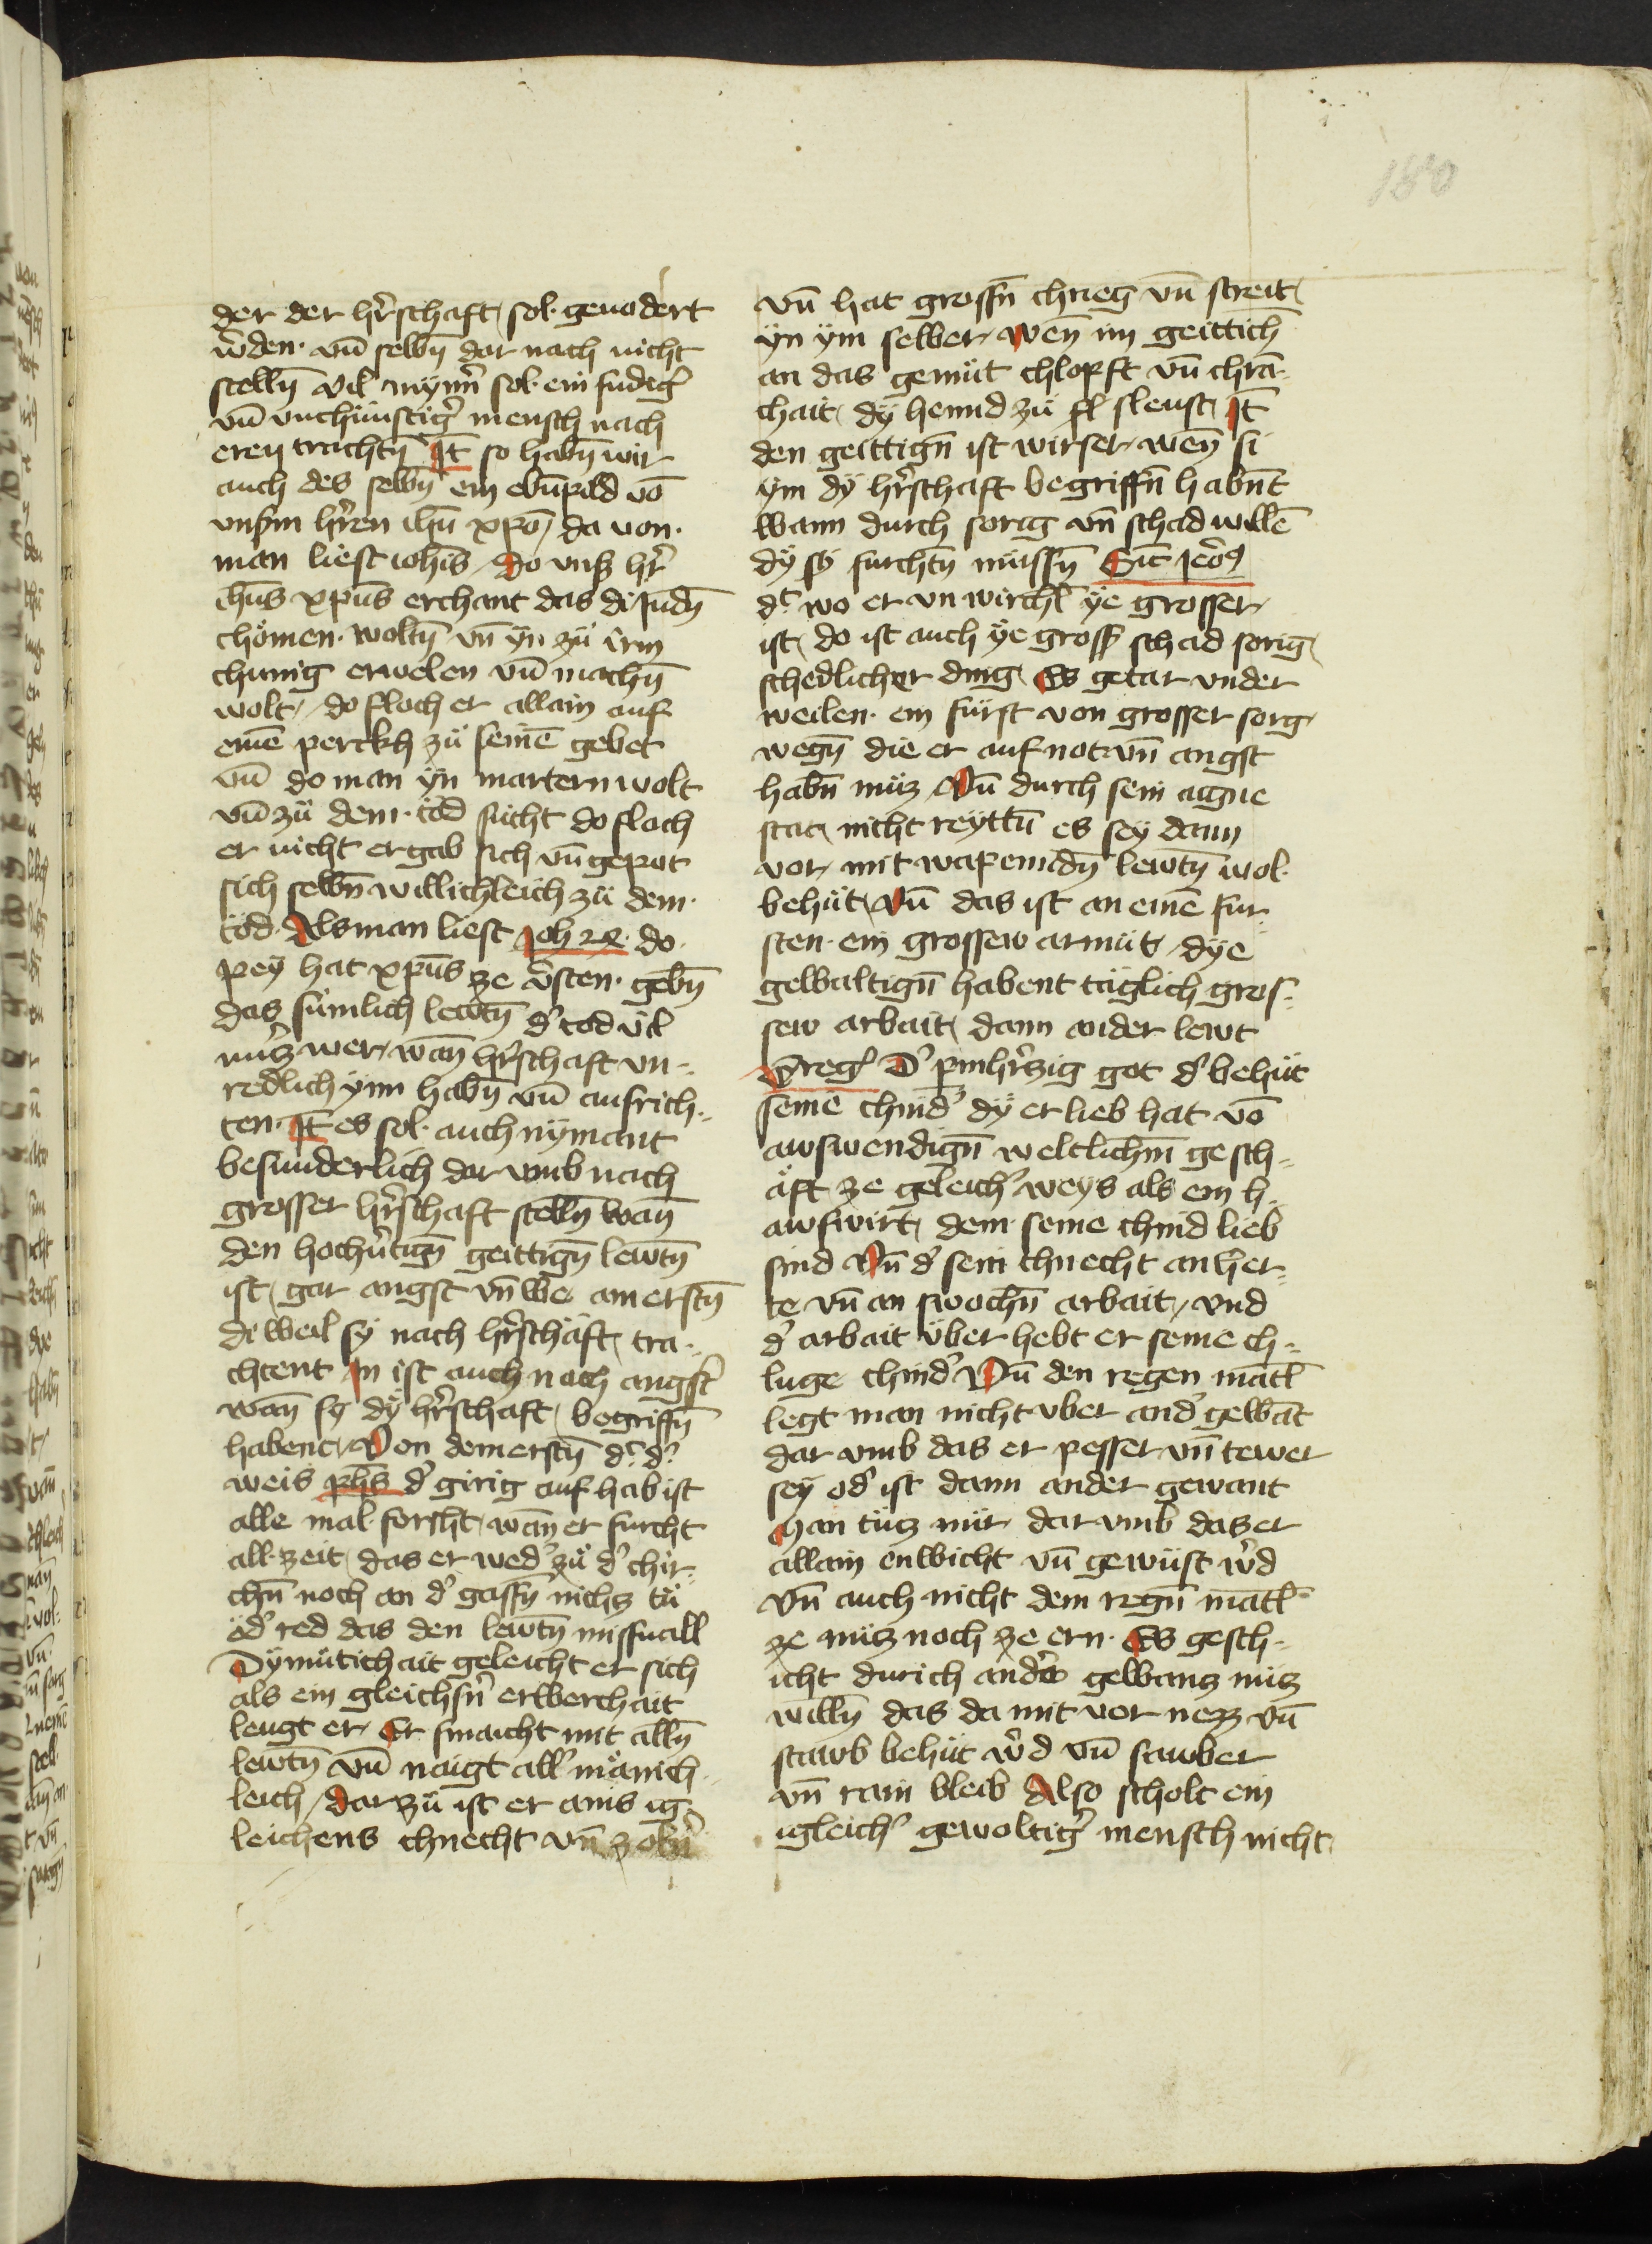 180
der der hr̄schaft sol· geuodert
w̄den· vn̄ selbn̄ dar nach nicht
stelln̄ vil mynn̄ sol· ein sudig̾
vn̄ vnchünstig̾ mensch nach
eren trachtn̄ It̄ so habn̄ wir
auch des selbn̄ ein ebn̄pild vō
vnßm hr̄en ih̄u xp̄o, da von·
man liest ioh̄is / do vnß hr̄
ih̄us xp̄us erchant das di Judn̄
chömen· woltn̄ vn̄ yn zü irm
chunig erwelen vn̄ machn̄
wolt, do floch er allain auf
einē perckh zü seinē gebet
vn̄ do man yn martern wolt
vn̄ zü dem· töd sücht do floch
er nicht er gab sich vn̄ gepot
sich selbn̄ willichleich zü dem·
töd· Als man liest Joh 28· do·
pey hat xp̄us ze v̄sten· gebn̄
das sümlich lewtn̄ d̾ tod vil
nücz wer, wan̄ hr̄schaft vn-
redlich ynn habn̄ vn̄ aufrich-
ten· It̄ es sol· auch nymant
besunderlich dar vmb nach
grosser hr̄schaft stelln̄ wan̄
den hochu̾tign̄ geittign̄ lewtn̄
ist, gar angst vn̄ we am erstn̄
di weil sy nach hr̄schäft, tra-
chtent In ist auch nach angst
wan̄ sy dÿ hr̄schaft, begriffn̄
habent, Von dem erstn̄ d̾ d̾
weis ph̄s d̾ girig auf hab ist
alle mal· forcht, wan̄ er furcht
all·zeit, das er wed̾ zü d̾ chir-
chn̄ noch an d̾ gassn̄ nichcz tü
öd̾ red das den lewtn̄ missuall
Dÿmütichait geleicht er sich
als ein gleichsn̄ erberchait
leugt er, Er smaicht mit alln̄
lewtn̄ vn̄ naigt all̾ mänich-
leich, dar zü ist er ains ig-
leichens chnecht vn̄
vn̄ hat grossn̄ chrieg vn̄ streit,
yn ym selber, Wen̄ im geittich
an das gemüt chlopft vn̄ chrā-
chait, dÿ hennd zü sl sleust, It̄
den geittign̄ ist wirser, wen̄ si
ym dÿ hr̄schaft begriffn̄ habn̄t
wann durch sorig vn̄ schad willē
dÿ sy furchtn̄ müssn̄
d̾ wo er vn wirchl̄ ÿe grosser,
ist, do ist auch ÿe gross̾ schad sorig,
schedlicher ding, Es getar vnder
weilen· ein fürst von grosser sorg,
wegn̄ die er auf not vn̄ angst
habn̄ müz, Vn̄ durch sein aigne
stat, nicht reyttn̄ es sey dann
vor, mit wapenndn̄ lewtn̄ wol·
behüt, Vn̄ das ist an einē fur-
sten· ein grossew armüt, dÿe
gewaltign̄ habent täglich gros-
sew arbait, dann ander lewt
Greg̾ D̾ pmhr̄czig got d̾ behüt
seine chind̾ dÿ er lieb hat vō
auswendign̄ weltlichn̄ gesch-
äft ze geleich̾ weys als ein h-
awswirt, dem· seine chind lieb
sind Vn̄ d̾ sein chnecht an her-
te vn̄ an swochn̄ arbait, vnd
d̾ arbait über hebt er seine ch-
luge chind̾ Vn̄ den regen mātl̄
legt man nicht vber and̾ gewāt
dar vmb das er pesser vn̄ tewer
sey od̾ ist dann ander gewant
Man tücz nür dar vmb das er
allain enwicht vn̄ gewüst w̄d
vn̄ auch nicht dem regn̄ mātl̄
ze nücz noch ze ern· Es gesch-
icht durich and̾e gewancz nücz
willn̄ das da mit vor nezz vn̄
stawb behüt w̄d vn̄ sawber
vn̄ rain bleib Also scholt ein
igleich̾ gewoltig̾ mensch nicht,